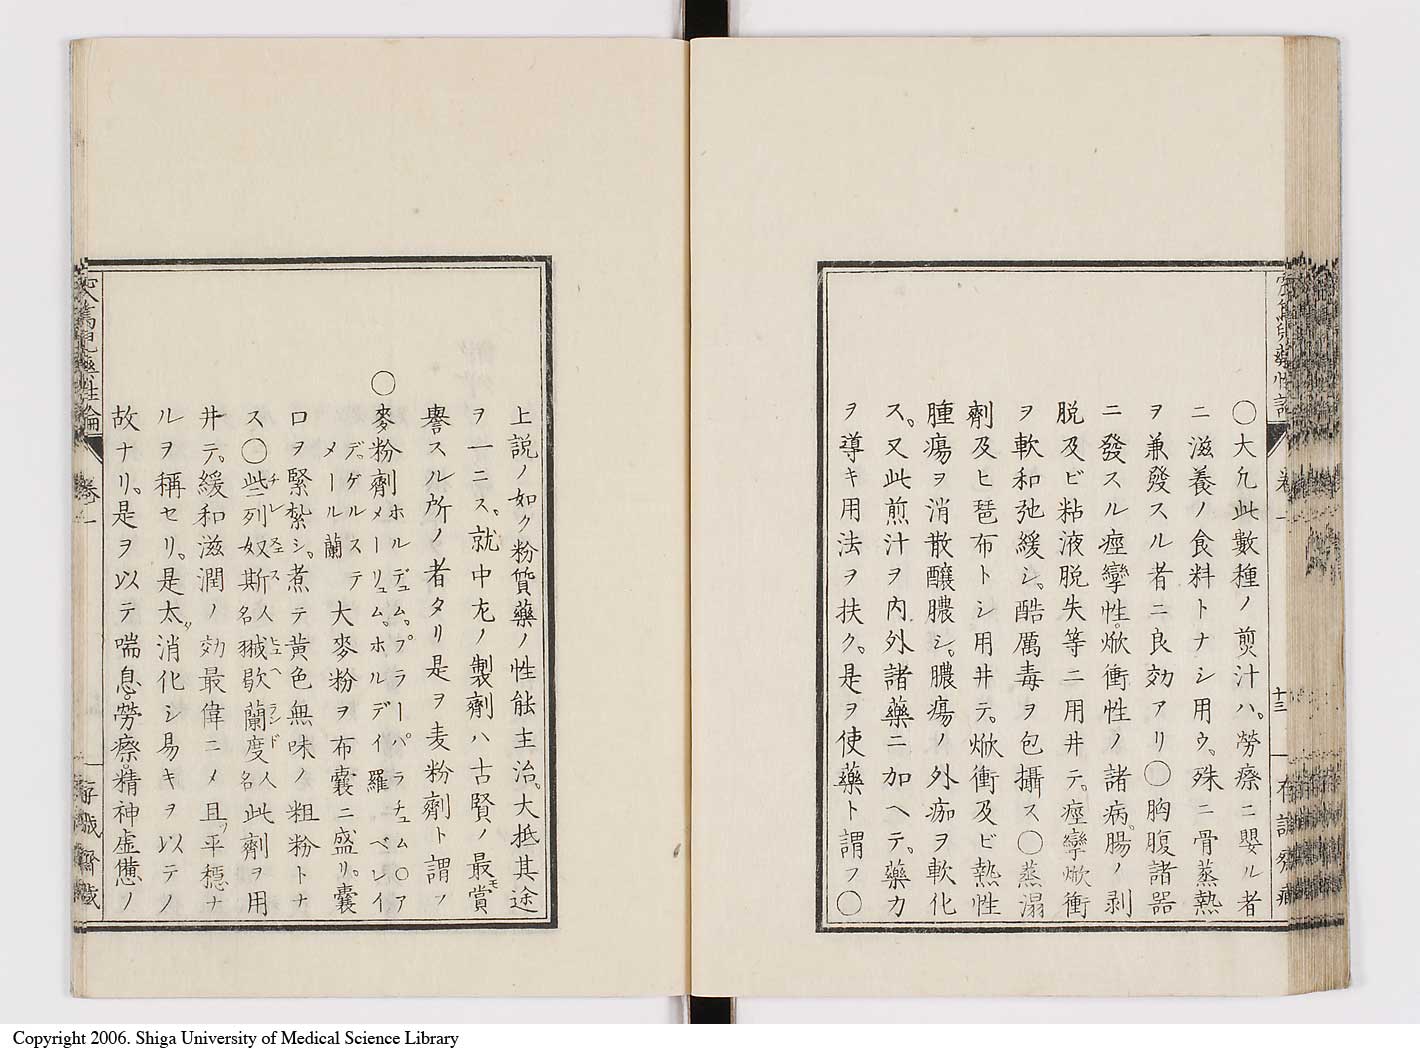 ○大凡此數種ノ煎汁ハ。勞療ニ嬰ル者
ニ滋養ノ食料トナシ用ウ。殊ニ骨蒸熱
ヲ兼發スル者ニ良効アリ○胸腹諸器
ニ發スル痙攣性。焮衝性ノ諸病。腸ノ剥
脱及ビ粘液脱失等ニ用井テ。痙攣焮衝
ヲ軟和弛緩シ。酷厲毒ヲ包攝ス○蒸溻
劑及ヒ琶布トシ用井テ。焮衝及ビ熱性
腫瘍ヲ消散釀膿シ。膿瘍ノ外痂ヲ軟化
ス。又此煎汁ヲ內外諸藥ニ加ヘテ。藥力
ヲ導キ用法ヲ扶ク。是ヲ使藥ト謂フ○
卷一
十三
上説ノ如ク粉質藥ノ性能主治。大抵其途
ヲ一ニス。就中尤ノ製劑ハ古賢ノ最モ賞
譽スル所ノ者タリ是ヲ麦粉劑ト謂フ
○麥粉劑ホルデュム。プラーパラチュム○ア
メーリュム。ホルデイ羅ニベレイ
デ。ゲルステ
メール蘭
大麥粉ヲ布嚢ニ盛リ。嚢
口ヲ緊紮シ。煮テ黃色無味ノ粗粉トナ
ス○些列奴斯人名獙歇蘭度人名此劑ヲ用
井テ。緩和滋潤ノ効最偉ニメ且ツ平穩ナ
ルヲ稱セリ。是太ダ消化シ易キヲ以テノ
故ナリ。是ヲ以テ喘息。勞療。精神虚憊ノ
窊篤兒藥性論
卷一
存誠齋藏
Copyright 2006. Shiga University of Medical Science Library